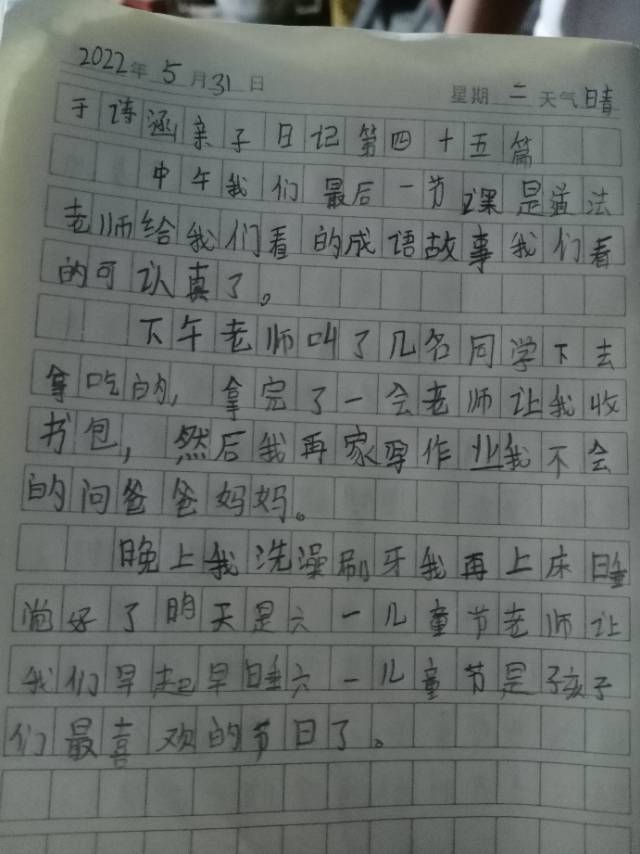 2022年5月31日 星期二 天气晴
于诗涵亲子日记第四十五篇
中午我们最后一节课是道法
老师给我们看的成语故事我们看
的可认真了。
下午老师叫了几名同学下去
拿吃的,拿完了一会老师让我收
书包,然后我再家写作业我不会
的问爸爸妈妈。
晚上我洗澡刷牙我再上床睡
觉好了明天是六一儿童节老师让
我们早起早睡六一儿童节是孩子
们最喜欢的节日了。